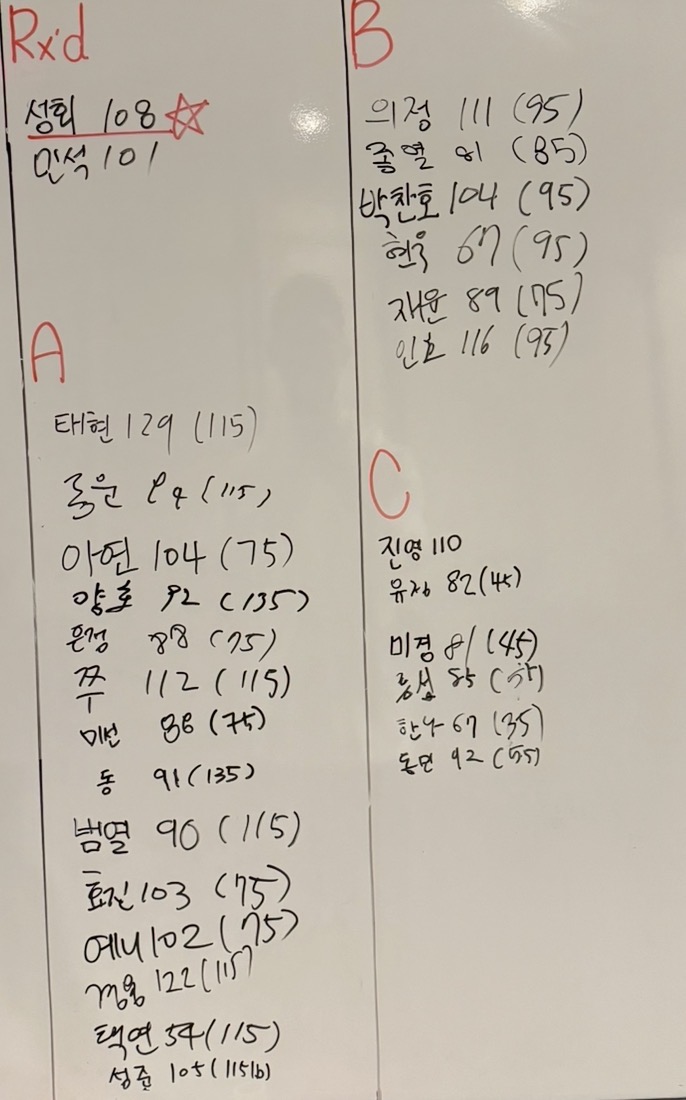 Rx'd
성회 108
민석 101
A
태현 129 (115)
(115)
아연 104 (75)
양호 92 (135)
은정 88 (75)
쭈 112 (115)
미선 88 (75)
동 91 (135)
범열 90 (115)
효진 103 (75)
예니 102 (75)
경용 122 (115)
택연 54 (115)
성준 105 (115lb)
B
의정 111 (95)
종열 81 (85)
박찬호 104 (95)
현욱 67 (95)
재윤 89 (75)
인호 116 (95)
C
진영 110
유정 82 (45)
미경 81 (45)
85
한나 67 (35)
동민 92 (55)